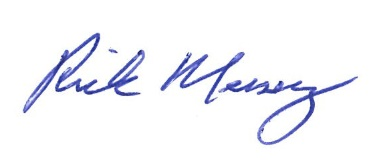 Rick Mersey